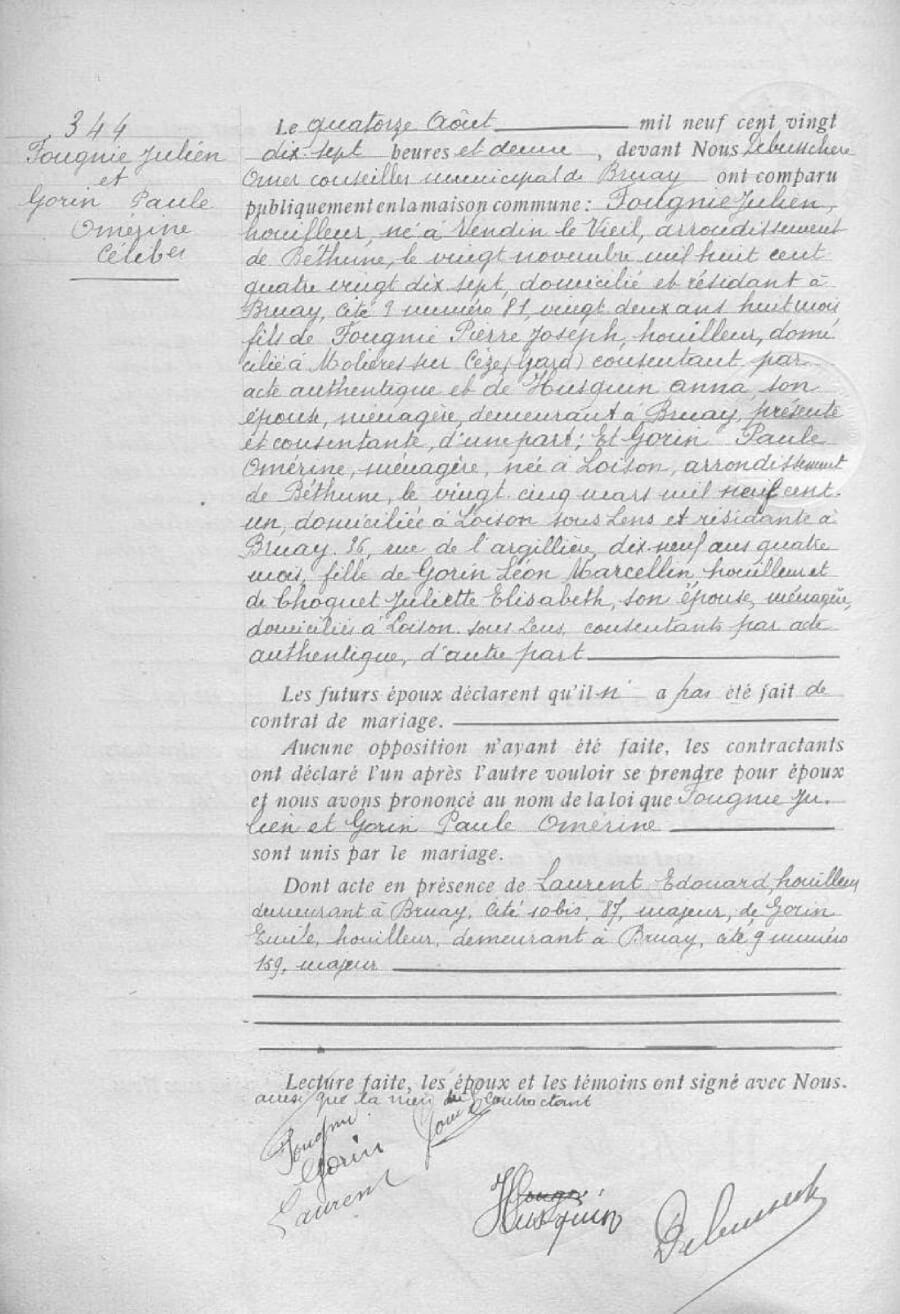 344
Fougnie Julien
et
Gorin Paule
Omérine
Célibes
Le quatorze Août mil neuf cent vingt
dix-sept heures et demie, devant Nous Debusschere
Omer conseiller municipal de Bruay ont comparu
publiquement en la maison commune : Fougnie Julien,
houilleur, né à Vendin le Vieil, arrondissement
de Béthune, le vingt novembre mil huit cent
quatre vingt dix sept, domicilié et résidant à
Bruay, cité 9 numéro 81, vingt deux ans huit mois
fils de Fougnie Pierre Joseph, houilleur, domi
cilié à Molières sur Cèze (Gard) consentant par
acte authentique et de Husquin Anna, son
épouse, ménagère, demeurant à Bruay, présente
et consentante, d'une part; Et Gorin Paule
Omérine, ménagère, née à Loison, arrondissement
de Béthune, le vingt cinq mars mil neuf cent
un, domiciliée à Loison sous Lens et résidante à
Bruay 36, rue de l'argillière, dix-neuf ans quatre
mois, fille de Gorin Léon Marcellin, houilleur et
de Choquet Juliette Elisabeth, son épouse, ménagère,
domiciliés à Loison sous Lens, consentants par acte
authentique, d'autre part
Les futurs époux déclarent qu'il n'a pas été fait de
contrat de mariage.
Aucune opposition n'ayant été faite, les contractants
ont déclaré l'un après l'autre vouloir se prendre pour époux
et nous avons prononcé au nom de la loi que Fougnie Ju-
lien et Gorin Paule Omérine
sont unis par le mariage.
Dont acte en présence de Laurent Edouard, houilleur
demeurant à Bruay, cité 10 bis, 87, majeur, de Gorin
Emile, houilleur, demeurant à Bruay, cité 9 numéro
159, majeur
Lecture faite, les époux et les témoins ont signé avec Nous.
ainsi que la mère du contractant
Fougnie
Gorin
Gorin
Laurent
Husquin
Debusschere